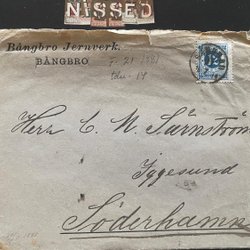 NISSED
Bångbro Jernverk.
BÅNGBRO
Herr C. W. Särnström
Iggesund
Söderhamn